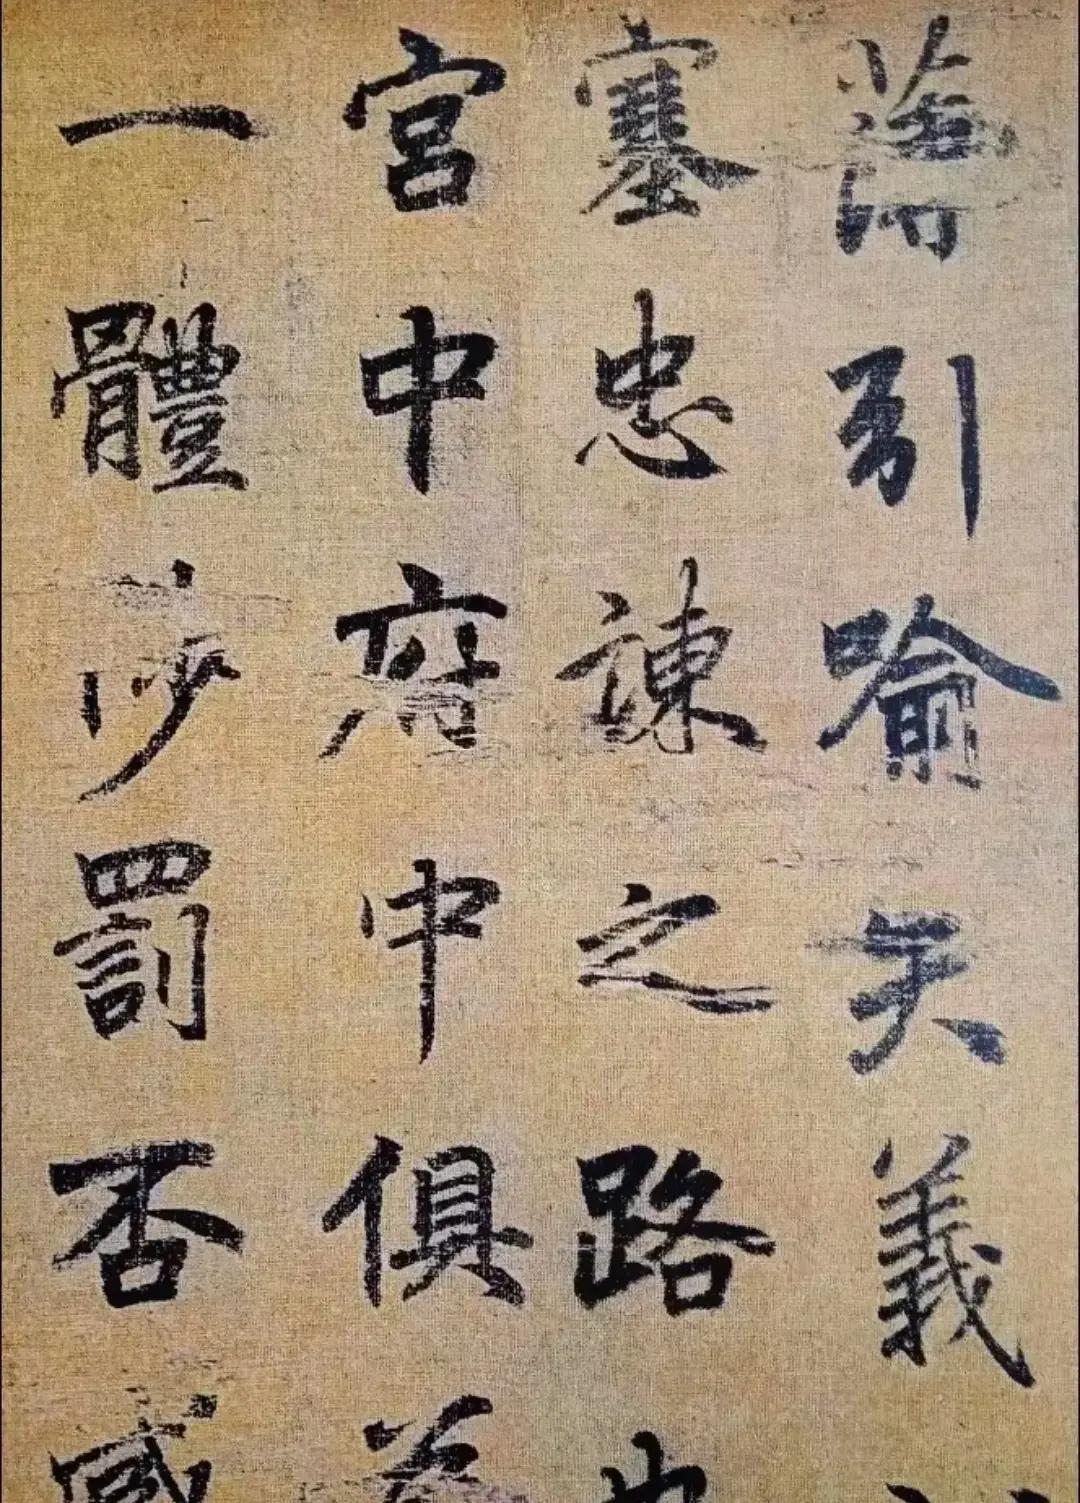 薄引喻失義
塞忠諫之路也
宮中府中俱為
一體陟罰否